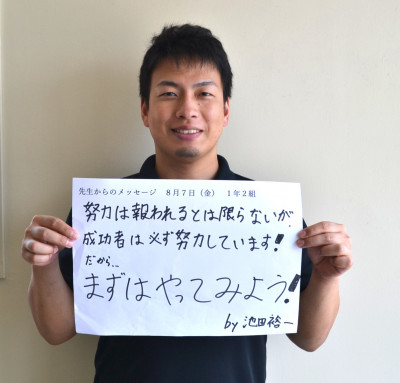 先生からのメッセージ　８月７日（金）　１年２組
努力は報われるとは限らないが、
成功者は必ず努力しています!
だから...
まずはやってみよう!
by 池田裕一